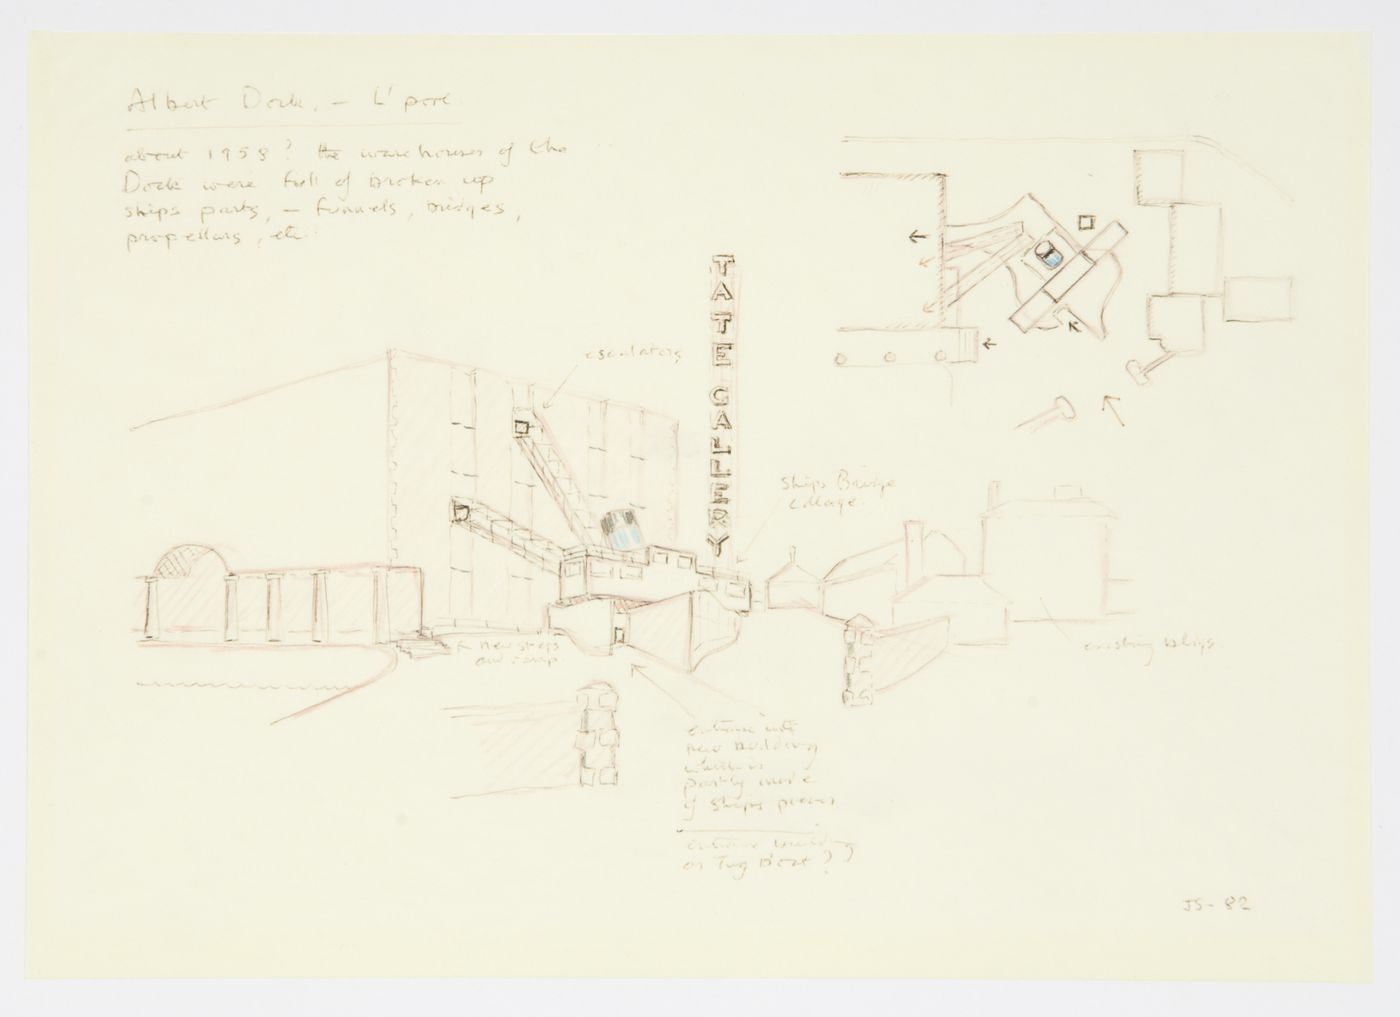 Albert Dock, - L'pool
about 1958? the warehouses of the
Dock were full of broken up
ships parts, - funnels, bridges,
propellars, etc.
TATE GALLERY
escalators
Ships Bridge
collage.
new steps
and ramp.
existing bldgs.
entrance into
new building
which is
partly made
of ships pieces
entrance building
as Tug Boat??
JS - 82